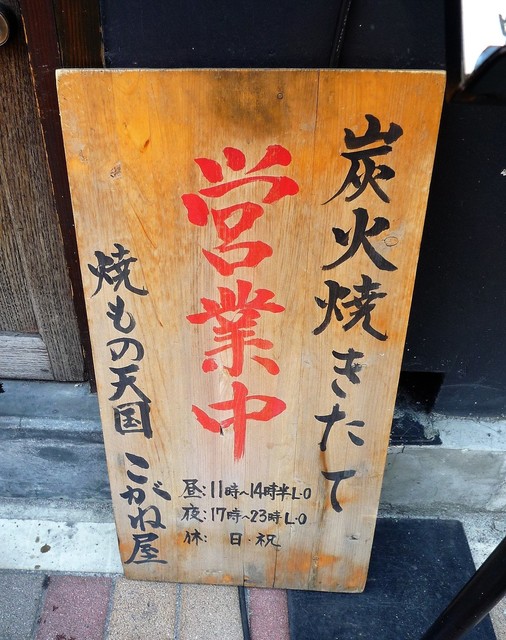 炭火焼きたて
営業中
焼もの天国 こがね屋
昼:11時~14時半L・O
夜:17時~23時L・O
休: 日・祝